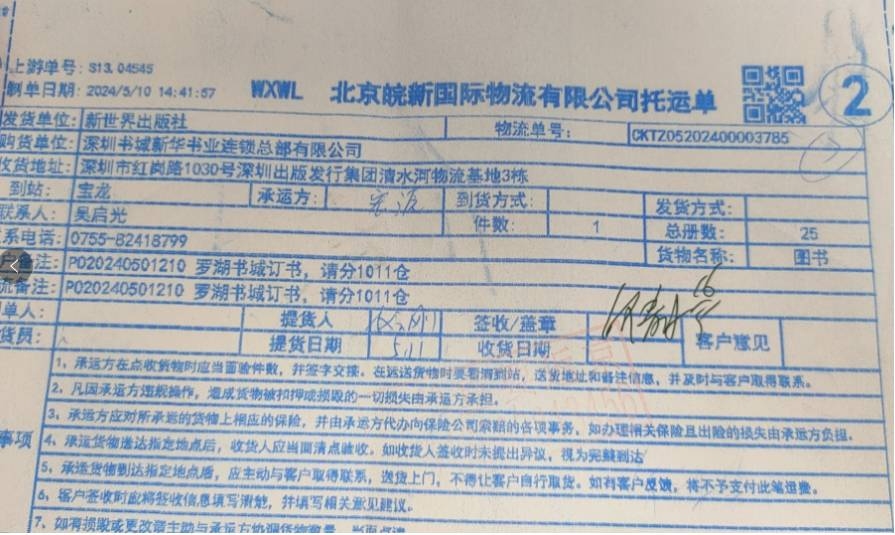 上游单号: S13.04545
制单日期: 2024/5/10 14:41:57 WXWL 北京皖新国际物流有限公司托运单 2
发货单位: 新世界出版社 物流单号: CKTZ05202400003785
购货单位: 深圳书城新华书业连锁总部有限公司
收货地址: 深圳市红岗路1030号深圳出版发行集团清水河物流基地3栋
到站: 宝龙 承运方: 宏源 到货方式: 发货方式:
联系人: 吴启光 件数: 1 总册数: 25
系电话: 0755-82418799 货物名称: 图书
户备注: PO20240501210 罗湖书城订书，请分1011仓
流备注: PO20240501210 罗湖书城订书，请分1011仓
单人: 提货人 签收/盖章 客户意见
货员: 提货日期 5.11 收货日期
事项
1、承运方在点收货物时应当面验件数，并签字交接。在运送货物时要看清到站，送货地址和备注信息，并及时与客户取得联系。
2、凡因承运方违规操作，造成货物被扣押或损毁的一切损失由承运方承担。
3、承运方应对所承运的货物上相应的保险，并由承运方代办向保险公司索赔的各项事务，如办理相关保险且出险的损失由承运方负担。
4、承运货物送达指定地点后，收货人应当面清点验收。如收货人签收时未提出异议，视为完整到达
5、承运货物到达指定地点后，应主动与客户取得联系，送货上门，不得让客户自行取货。如有客户反馈，将不予支付此笔运费。
6、客户签收时应将签收信息填写清楚，并填写相关意见建议。
7、如有损毁或更改请主动与承运方协调货物数量，当面点清